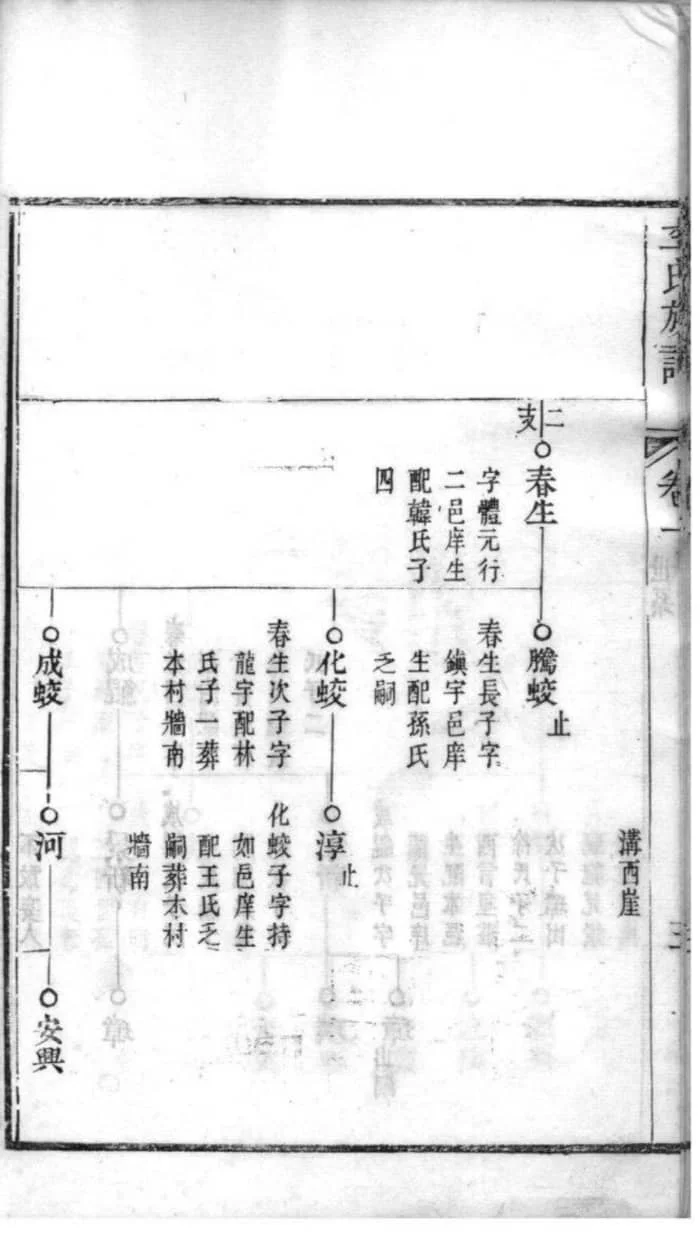 氏族譜
卷一
溝西崖
二支
春生
字體元行
二邑庠生
配韓氏子
四
騰蛟
止
春生長子字
鎮宇邑庠
生配孫氏
乏嗣
化蛟
春生次子字
龍宇配林
氏子一葬
本村牆南
淳
止
化蛟子字持
如邑庠生
配王氏乏
嗣葬本村
牆南
成蛟
河
安興